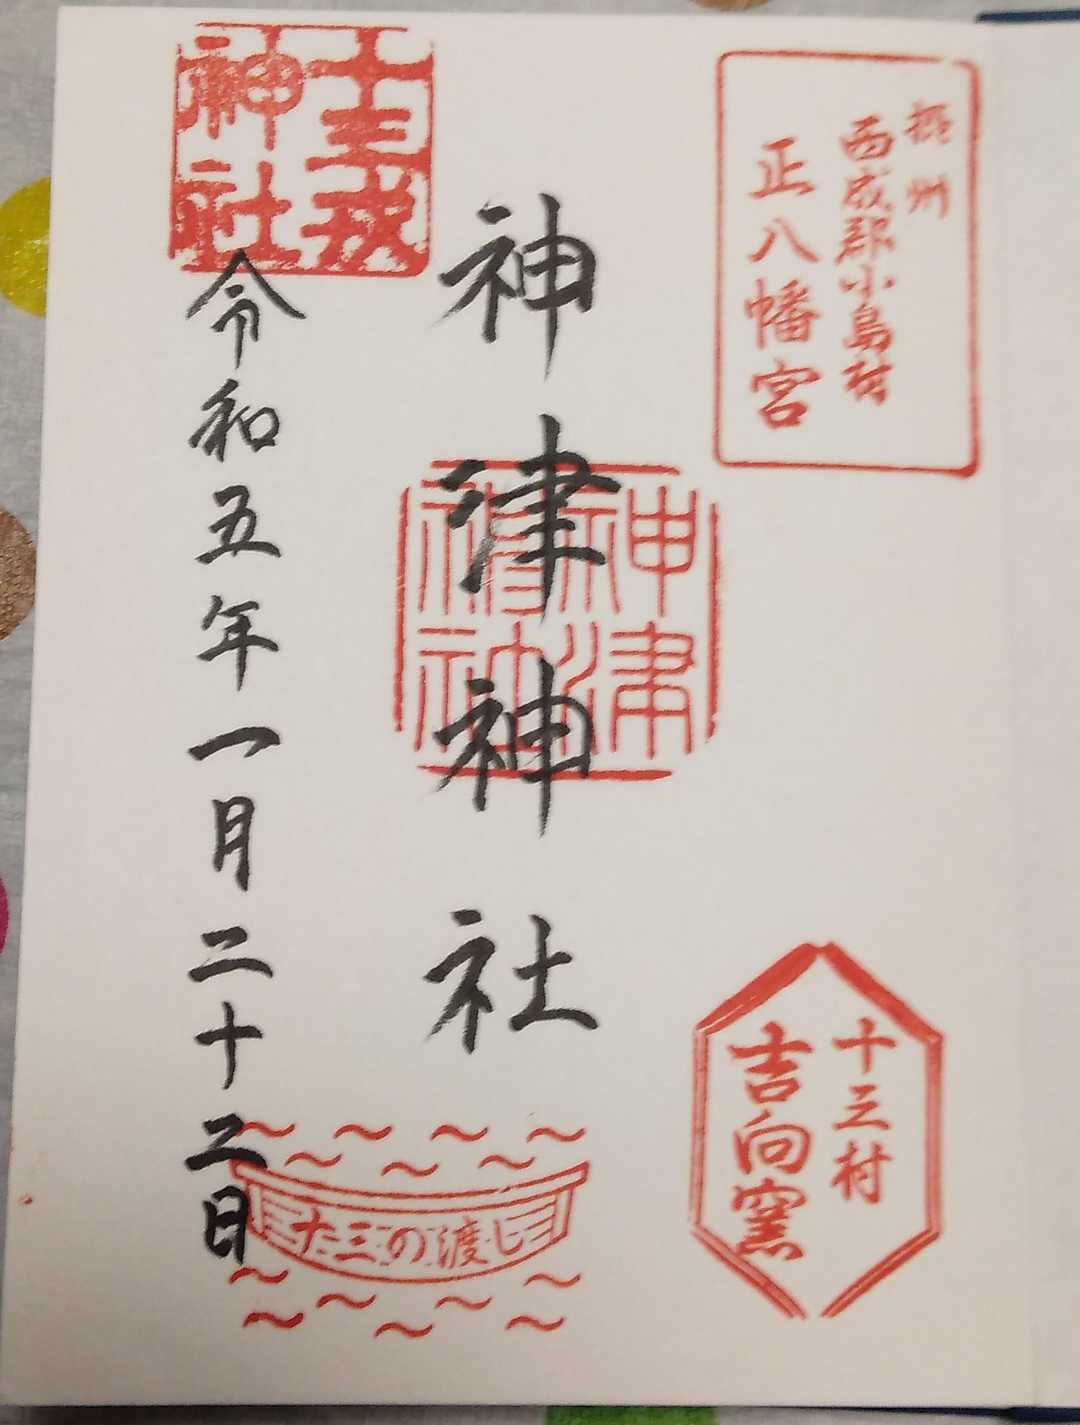 摂州
西成郡小島村
正八幡宮
十三村
吉向窯
神津神社
神津神社
十三戎
神社
令和五年一月二十二日
十三の渡し